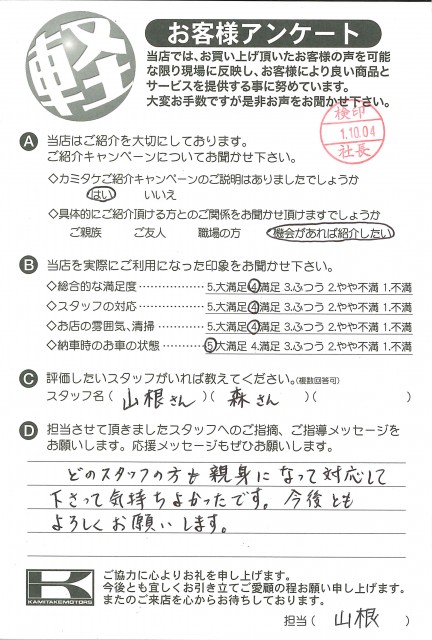 軽
お客様アンケート
当店では、お買い上げ頂いたお客様の声を可能
な限り現場に反映し、お客様により良い商品と
サービスを提供する事に努めています。
大変お手数ですが是非お声をお聞かせ下さい。
検印
1.10.04
社長
A 当店はご紹介を大切にしております。
ご紹介キャンペーンについてお聞かせ下さい。
◇カミタケご紹介キャンペーンのご説明はありましたでしょうか
はい いいえ
◇具体的にご紹介頂ける方とのご関係をお聞かせ頂けますでしょうか
ご親族 ご友人 職場の方 機会があれば紹介したい
B 当店を実際にご利用になった印象をお聞かせ下さい。
◇総合的な満足度………… 5.大満足 4.満足 3.ふつう 2.やや不満 1.不満
◇スタッフの対応………… 5.大満足 4.満足 3.ふつう 2.やや不満 1.不満
◇お店の雰囲気、清掃…… 5.大満足 4.満足 3.ふつう 2.やや不満 1.不満
◇納車時のお車の状態…… 5.大満足 4.満足 3.ふつう 2.やや不満 1.不満
C 評価したいスタッフがいれば教えてください。(複数回答可)
スタッフ名( 山根さん )( 森さん )( )
D 担当させて頂きましたスタッフへのご指摘、ご指導メッセージを
お願いします。応援メッセージもぜひお願いします。
どのスタッフの方も親身になって対応して
下さって気持ちよかったです。今後とも
よろしくお願いします。
K
KAMITAKEMOTORS
ご協力に心よりお礼を申し上げます。
今後とも宜しくお引き立てご愛顧の程お願い申し上げます。
またのご来店を心からお待ちしております。
担当( 山根 )